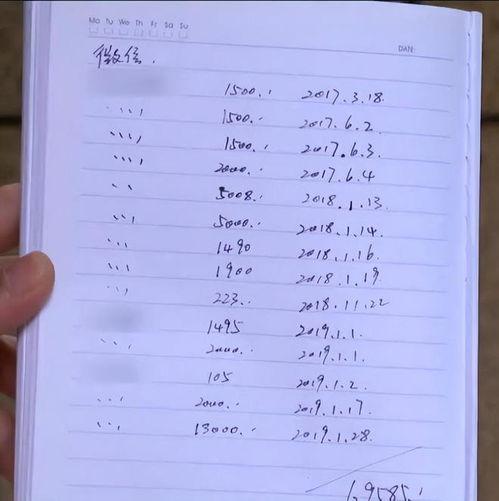 Mo Tu We Th Fr Sa Su
DAN:
微信.
1500.: 2017.3.18.
、、、, 1500.: 2017.6.2.
、、、, 1500.: 2017.6.3.
、、、, 2000.: 2017.6.4
、、 5008.: 2018.1.13.
、、、 5000.: 2018.1.14.
、、、 1490 2018.1.16.
、、、 1900 2018.1.19.
、、、 223.: 2018.11.22
1495 2019.1.1.
、、、 2000.: 2019.1.1.
105 2019.1.2.
、、、 2000.: 2019.1.17.
、、、 13000.: 2019.1.28.